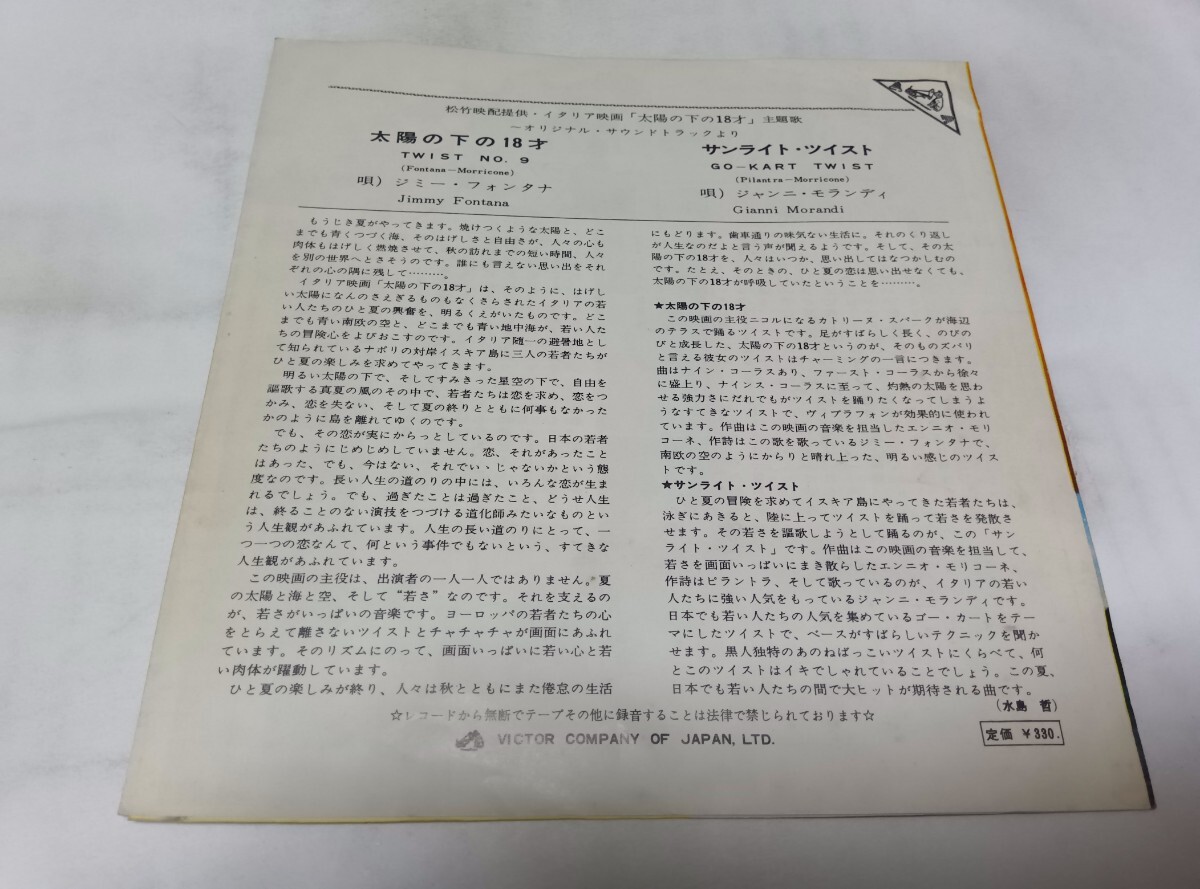 松竹映配提供・イタリア映画「太陽の下の18才」主題歌
〜オリジナル・サウンドトラックより
太陽の下の18才
TWIST NO. 9
(Fontana—Morricone)
唄）ジミー・フォンタナ
Jimmy Fontana
サンライト・ツイスト
GO—KART TWIST
(Pilantra—Morricone)
唄）ジャンニ・モランディ
Gianni Morandi
もうじき夏がやってきます。焼けつくような太陽と、どこ
までも青くつづく海、そのはげしさと自由さが、人々の心も
肉体もはげしく燃焼させて、秋の訪れまでの短い時間、人々
を別の世界へとさそうのです。誰にも言えない思い出をそれ
ぞれの心の隅に残して………。
イタリア映画「太陽の下の18才」は、そのように、はげし
い太陽になんのさえぎるものもなくさらされたイタリアの若
い人たちのひと夏の興奮を、明るくえがいたものです。どこ
までも青い南欧の空と、どこまでも青い地中海が、若い人た
ちの冒険心をよびおこすのです。イタリア随一の避暑地とし
て知られているナポリの対岸イスキア島に三人の若者たちが
ひと夏の楽しみを求めてやってきます。
明るい太陽の下で、そしてすみきった星空の下で、自由を
謳歌する真夏の風のその中で、若者たちは恋を求め、恋をつ
かみ、恋を失ない、そして夏の終りとともに何事もなかった
かのように島を離れてゆくのです。
でも、その恋が実にからっとしているのです。日本の若者
たちのようにじめじめしていません。恋、それがあったこと
はあった、でも、今はない、それでいゝじゃないかという態
度なのです。長い人生の道のりの中には、いろんな恋が生ま
れるでしょう。でも、過ぎたことは過ぎたこと、どうせ人生
は、終ることのない演技をつづける道化師みたいなものとい
う人生観があふれています。人生の長い道のりにとって、一
つ一つの恋なんて、何という事件でもないという、すてきな
人生観があふれています。
この映画の主役は、出演者の一人一人ではありません。夏
の太陽と海と空、そして“若さ”なのです。それを支えるの
が、若さがいっぱいの音楽です。ヨーロッパの若者たちの心
をとらえて離さないツイストとチャチャチャが画面にあふれ
ています。そのリズムにのって、画面いっぱいに若い心と若
い肉体が躍動しています。
ひと夏の楽しみが終り、人々は秋とともにまた倦怠の生活
にもどります。歯車通りの味気ない生活に。それのくり返し
が人生なのだよと言う声が聞えるようです。そして、その太
陽の下の18才を、人々はいつか、思い出してはなつかしむの
です。たとえ、そのときの、ひと夏の恋は思い出せなくても、
太陽の下の18才が呼吸していたということを………。
★太陽の下の18才
この映画の主役ニコルになるカトリーヌ・スパークが海辺
のテラスで踊るツイストです。足がすばらしく長く、のびの
びと成長した、太陽の下の18才というのが、そのものズバリ
と言える彼女のツイストはチャーミングの一言につきます。
曲はナイン・コーラスあり、ファースト・コーラスから徐々
に盛上り、ナインス・コーラスに至って、灼熱の太陽を思わ
せる強力さにだれでもがツイストを踊りたくなってしまうよ
うなすてきなツイストで、ヴィブラフォンが効果的に使われ
ています。作曲はこの映画の音楽を担当したエンニオ・モリ
コーネ、作詩はこの歌を歌っているジミー・フォンタナで、
南欧の空のようにからりと晴れ上った、明るい感じのツイス
トです。
★サンライト・ツイスト
ひと夏の冒険を求めてイスキア島にやってきた若者たちは、
泳ぎにあきると、陸に上ってツイストを踊って若さを発散さ
せます。その若さを謳歌しようとして踊るのが、この「サン
ライト・ツイスト」です。作曲はこの映画の音楽を担当して、
若さを画面いっぱいにまき散らしたエンニオ・モリコーネ、
作詩はピラントラ、そして歌っているのが、イタリアの若い
人たちに強い人気をもっているジャンニ・モランディです。
日本でも若い人たちの人気を集めているゴー・カートをテー
マにしたツイストで、ベースがすばらしいテクニックを聞か
せます。黒人独特のあのねばっこいツイストにくらべて、何
とこのツイストはイキでしゃれていることでしょう。この夏、
日本でも若い人たちの間で大ヒットが期待される曲です。
（水島 哲）
☆レコードから無断でテープその他に録音することは法律で禁じられております☆
VICTOR COMPANY OF JAPAN, LTD.
定価 ¥330.